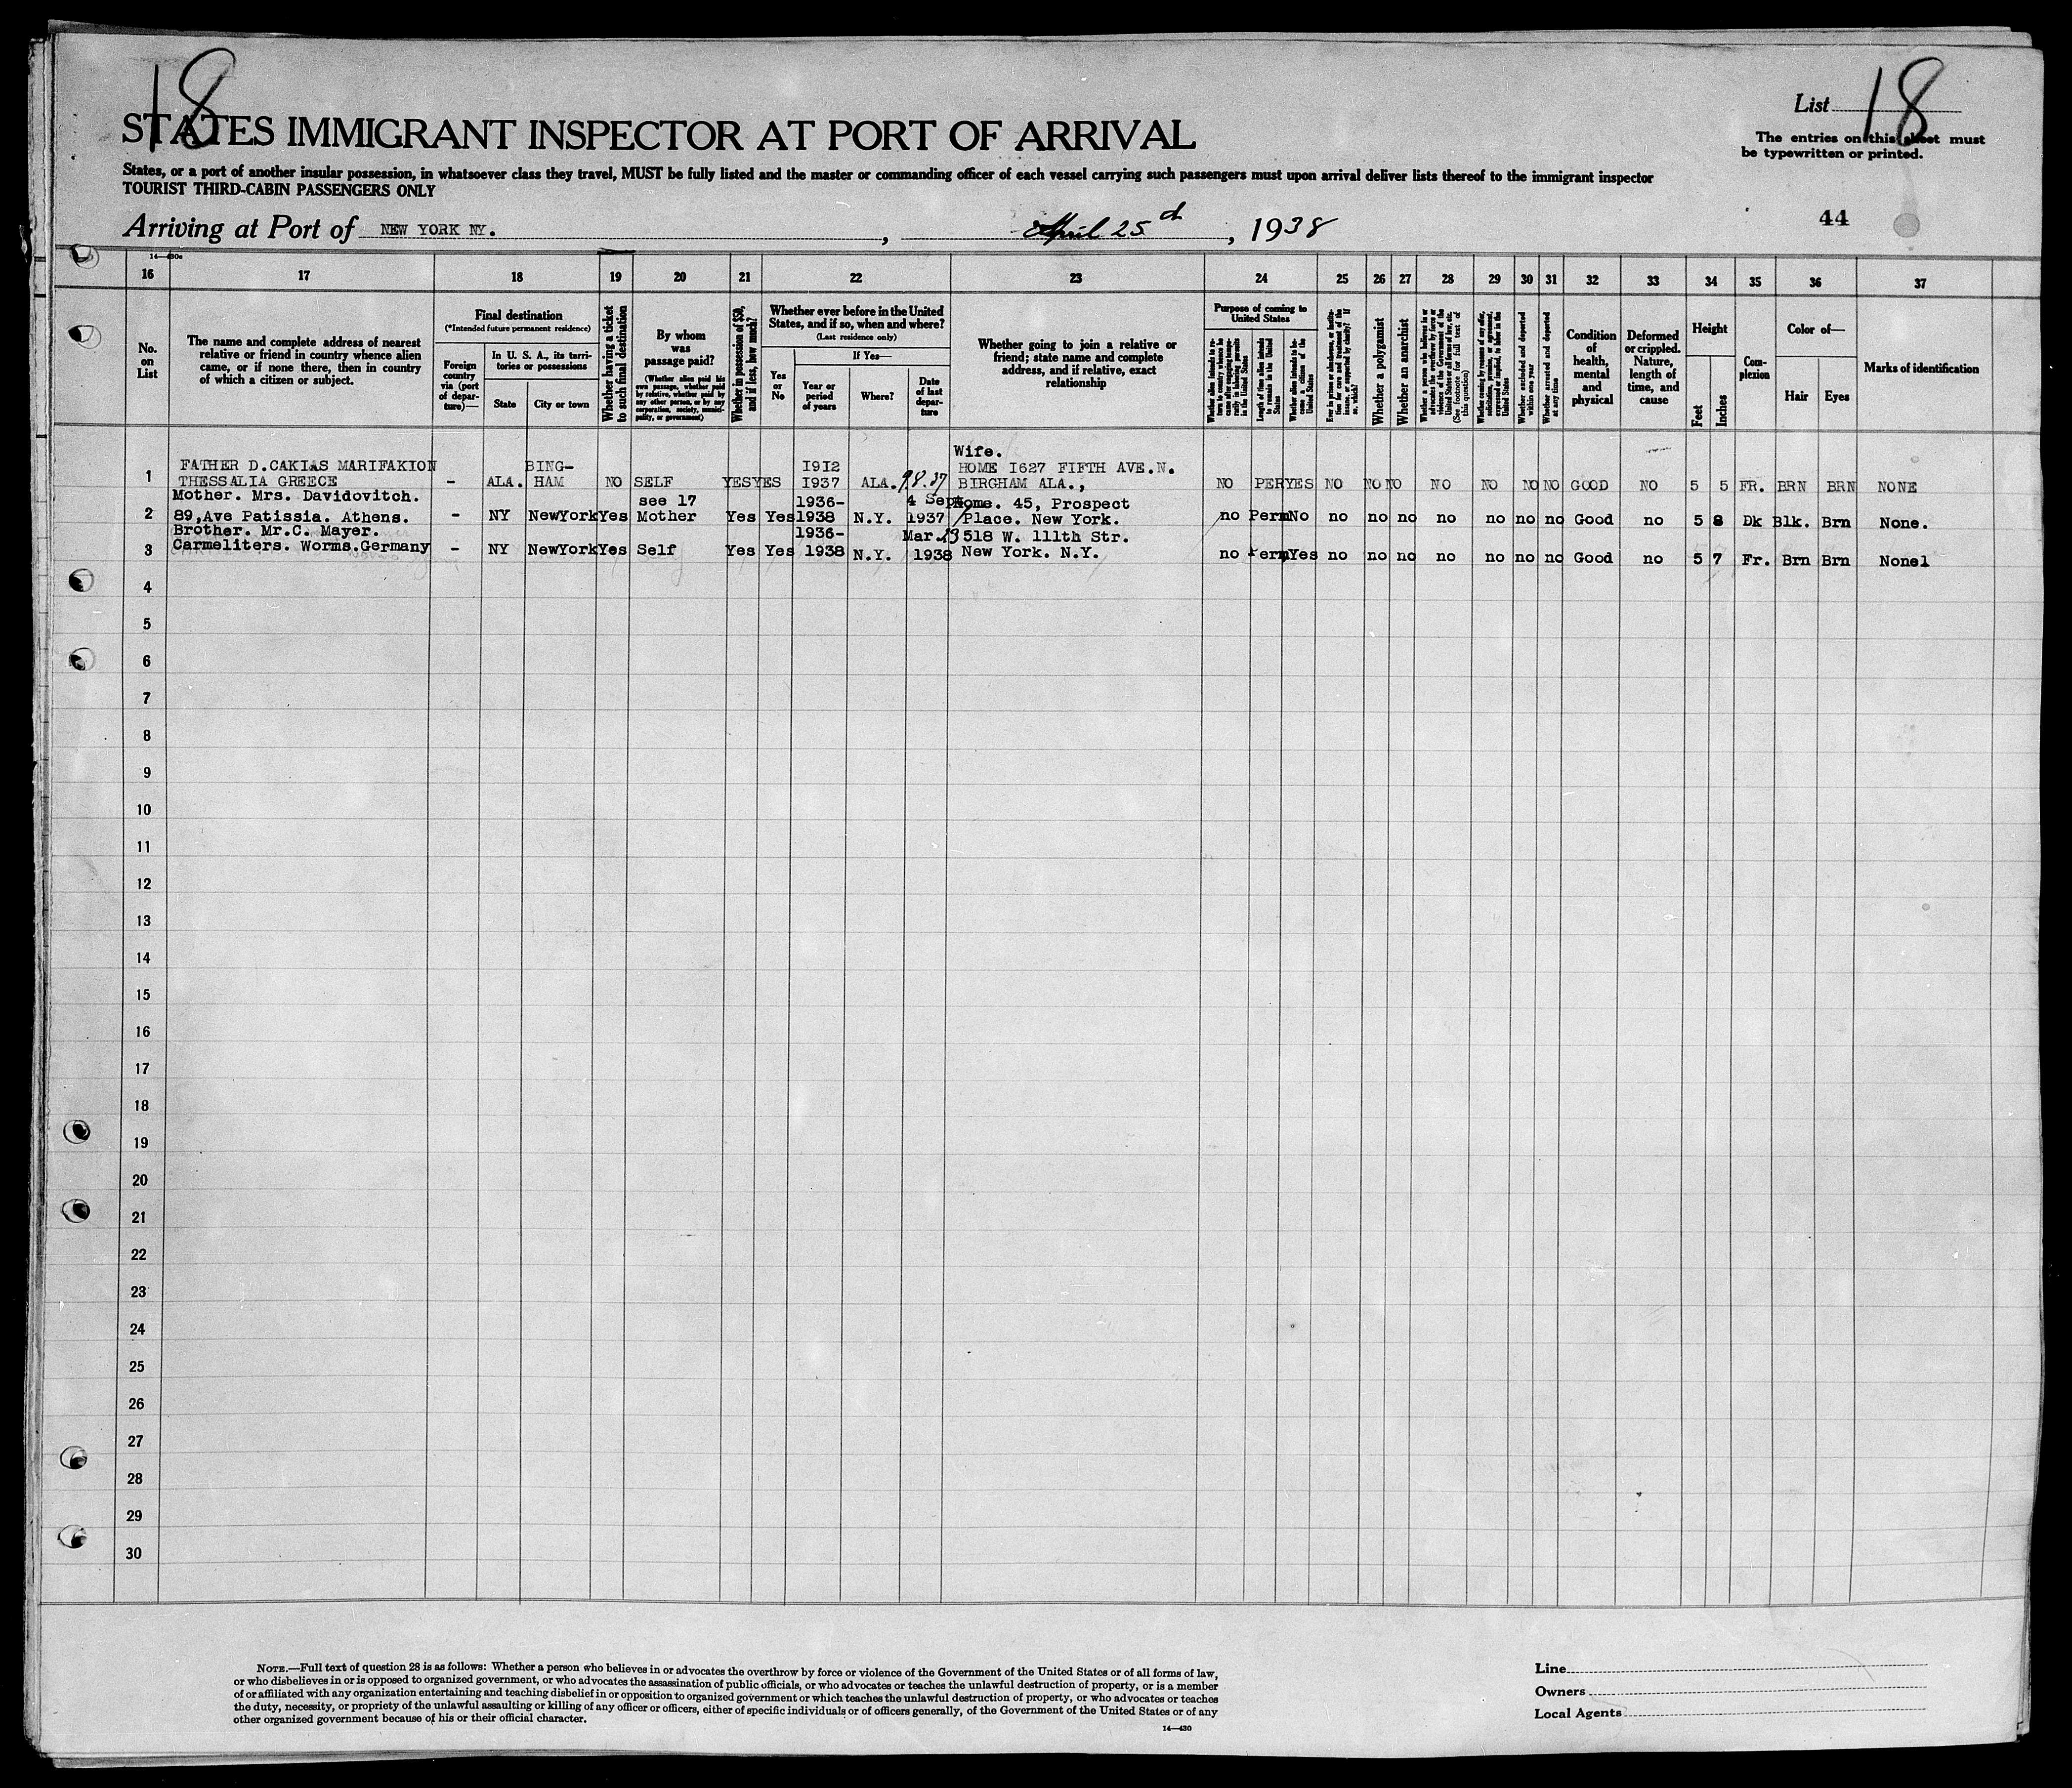 18
List 18
STATES IMMIGRANT INSPECTOR AT PORT OF ARRIVAL
The entries on this sheet must
be typewritten or printed.
States, or a port of another insular possession, in whatsoever class they travel, MUST be fully listed and the master or commanding officer of each vessel carrying such passengers must upon arrival deliver lists thereof to the immigrant inspector
TOURIST THIRD-CABIN PASSENGERS ONLY
Arriving at Port of NEW YORK NY. , April 25 , 1938
44
16 17 18 19 20 21 22 23 24 25 26 27 28 29 30 31 32 33 34 35 36 37
No. on List
The name and complete address of nearest
relative or friend in country whence alien
came, or if none there, then in country
of which a citizen or subject.
Final destination
(*Intended future permanent residence)
Foreign
country
via (port
of depar-
ture)—
In U. S. A., its terri-
tories or possessions
State
City or town
Whether having a ticket
to such final destination
By whom
was
passage paid?
(Whether alien paid his
own passage, whether paid
by relative, whether paid by
any other person, or by any
corporation, society, munici-
pality, or government)
Whether in possession of $50,
and if less, how much?
Whether ever before in the United
States, and if so, when and where?
(Last residence only)
Yes
or
No
If Yes—
Year or
period
of years
Where?
Date
of last
depar-
ture
Whether going to join a relative or
friend; state name and complete
address, and if relative, exact
relationship
Purpose of coming to
United States
Length of time alien intends
to remain in the United
States
Whether alien intends to be-
come a citizen of the
United States
Whether a polygamist
Whether an anarchist
Whether excluded and deported
within one year
Whether arrested and deported
at any time
Condition
of
health,
mental
and
physical
Deformed
or crippled.
Nature,
length of
time, and
cause
Height
Feet
Inches
Com-
plexion
Color of—
Hair
Eyes
Marks of identification
Wife.
FATHER D.CAKIAS MARIFAKION BING- 1912 HOME 1627 FIFTH AVE.N.
1 THESSALIA GREECE - ALA. HAM NO SELF YES YES 1937 ALA. 9.8.37 BIRGHAM ALA., NO PER YES NO NO NO NO NO NO NO GOOD NO 5 5 FR. BRN BRN NONE
Mother. Mrs. Davidovitch. see 17 1936- 4 Sept Home. 45, Prospect
2 89,Ave Patissia. Athens. - NY NewYork Yes Mother Yes Yes 1938 N.Y. 1937 Place. New York. no Perm No no no no no no no no Good no 5 8 Dk Blk. Brn None.
Brother. Mr.C. Mayer. 1936- Mar. 518 W. 111th Str.
3 Carmeliters. Worms.Germany - NY NewYork Yes Self Yes Yes 1938 N.Y. 1938 New York. N.Y. no Perm Yes no no no no no no no Good no 5 7 Fr. Brn Brn Nonel
4
5
6
7
8
9
10
11
12
13
14
15
16
17
18
19
20
21
22
23
24
25
26
27
28
29
30
NOTE.—Full text of question 28 is as follows: Whether a person who believes in or advocates the overthrow by force or violence of the Government of the United States or of all forms of law,
or who disbelieves in or is opposed to organized government, or who advocates the assassination of public officials, or who advocates or teaches the unlawful destruction of property, or is a member
of or affiliated with any organization entertaining and teaching disbelief in or opposition to organized government or which teaches the unlawful destruction of property, or who advocates or teaches
the duty, necessity, or propriety of the unlawful assaulting or killing of any officer or officers, either of specific individuals or of officers generally, of the Government of the United States or of any
other organized government because of his or their official character.
14—430
Line
Owners
Local Agents